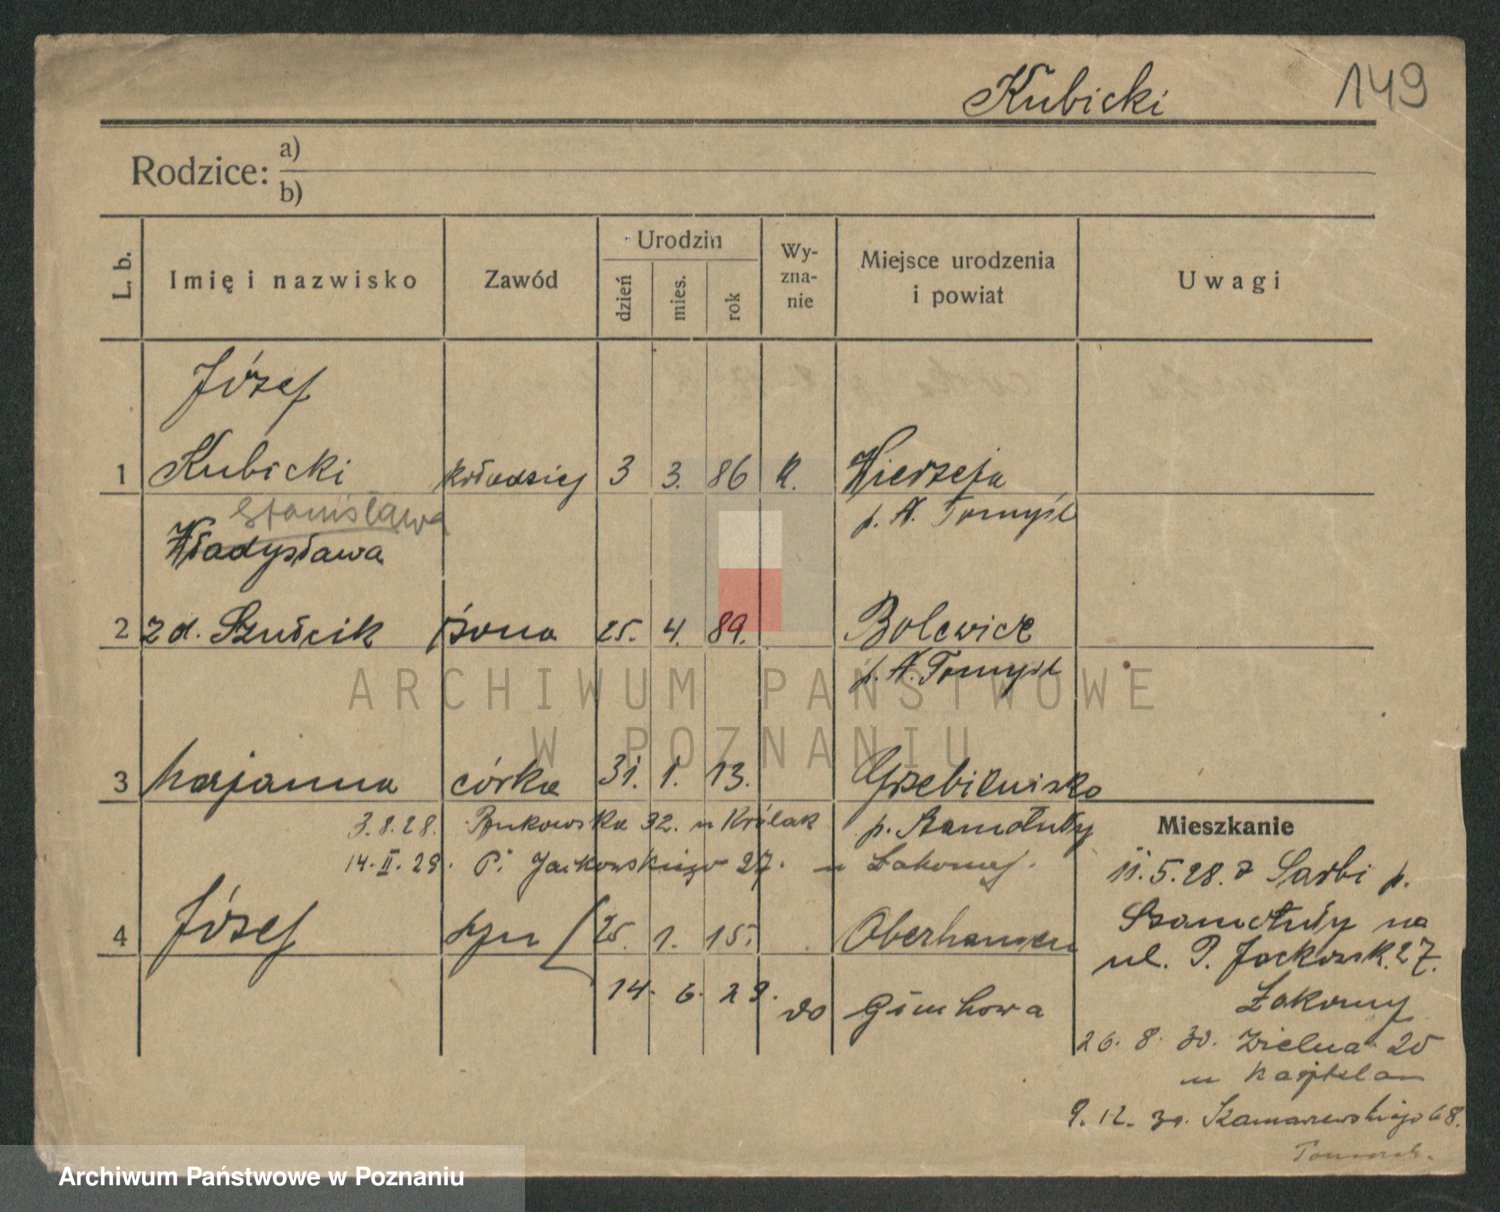 Kubicki 149
Rodzice: a)
b)
L. b. Imię i nazwisko Zawód Urodzin dzień mies. rok Wy-zna-nie Miejsce urodzenia i powiat Uwagi
Józef
1 Kubicki kołodziej 3 3. 86 K. Wierzeja
Stanisława p. N. Tomyśl
Władysława
2 zd. Szułcik żona 25. 4. 89. Bolewice
p. N. Tomyśl
ARCHIWUM PAŃSTWOWE
W POZNANIU
3 Marjanna córka 31. 1. 13. Grzebienisko
3.8.28. Bukowska 32. u Królak p. Szamotuły
Mieszkanie
14.II.29. P. Jackowskiego 27. u Łakomy.
11.5.28. z Sarbi p.
4 Józef syn 25. 1. 15. Oberhausen
Szamotuły na
ul. P. Jackowsk. 27.
14. 6. 29. do
Łakomy
26. 8. 30. Wielna 25
u Kajtela
9. 12. 30. Szamarzewskiego 68.
Archiwum Państwowe w Poznaniu